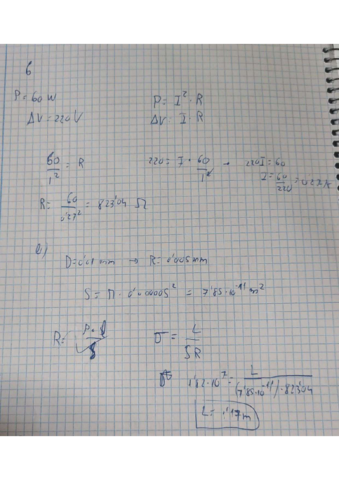 6
P=60W
ΔV=220V
P= I² · R
ΔV= I R
60/I² = R
220= I · 60/I² → 220I=60
I= 60/220 = 0'27A
R= 60/0'27² = 823'04 Ω
D=0'01mm → R=0'005mm
S= Π · 0'000005² = 7'85·10⁻¹¹ m²
R=
σ = L/SR
1'82·10⁷ = L/(7'85·10⁻¹¹)·823'04
L= 1'17m